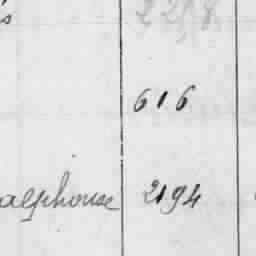 616
alphonse 2194